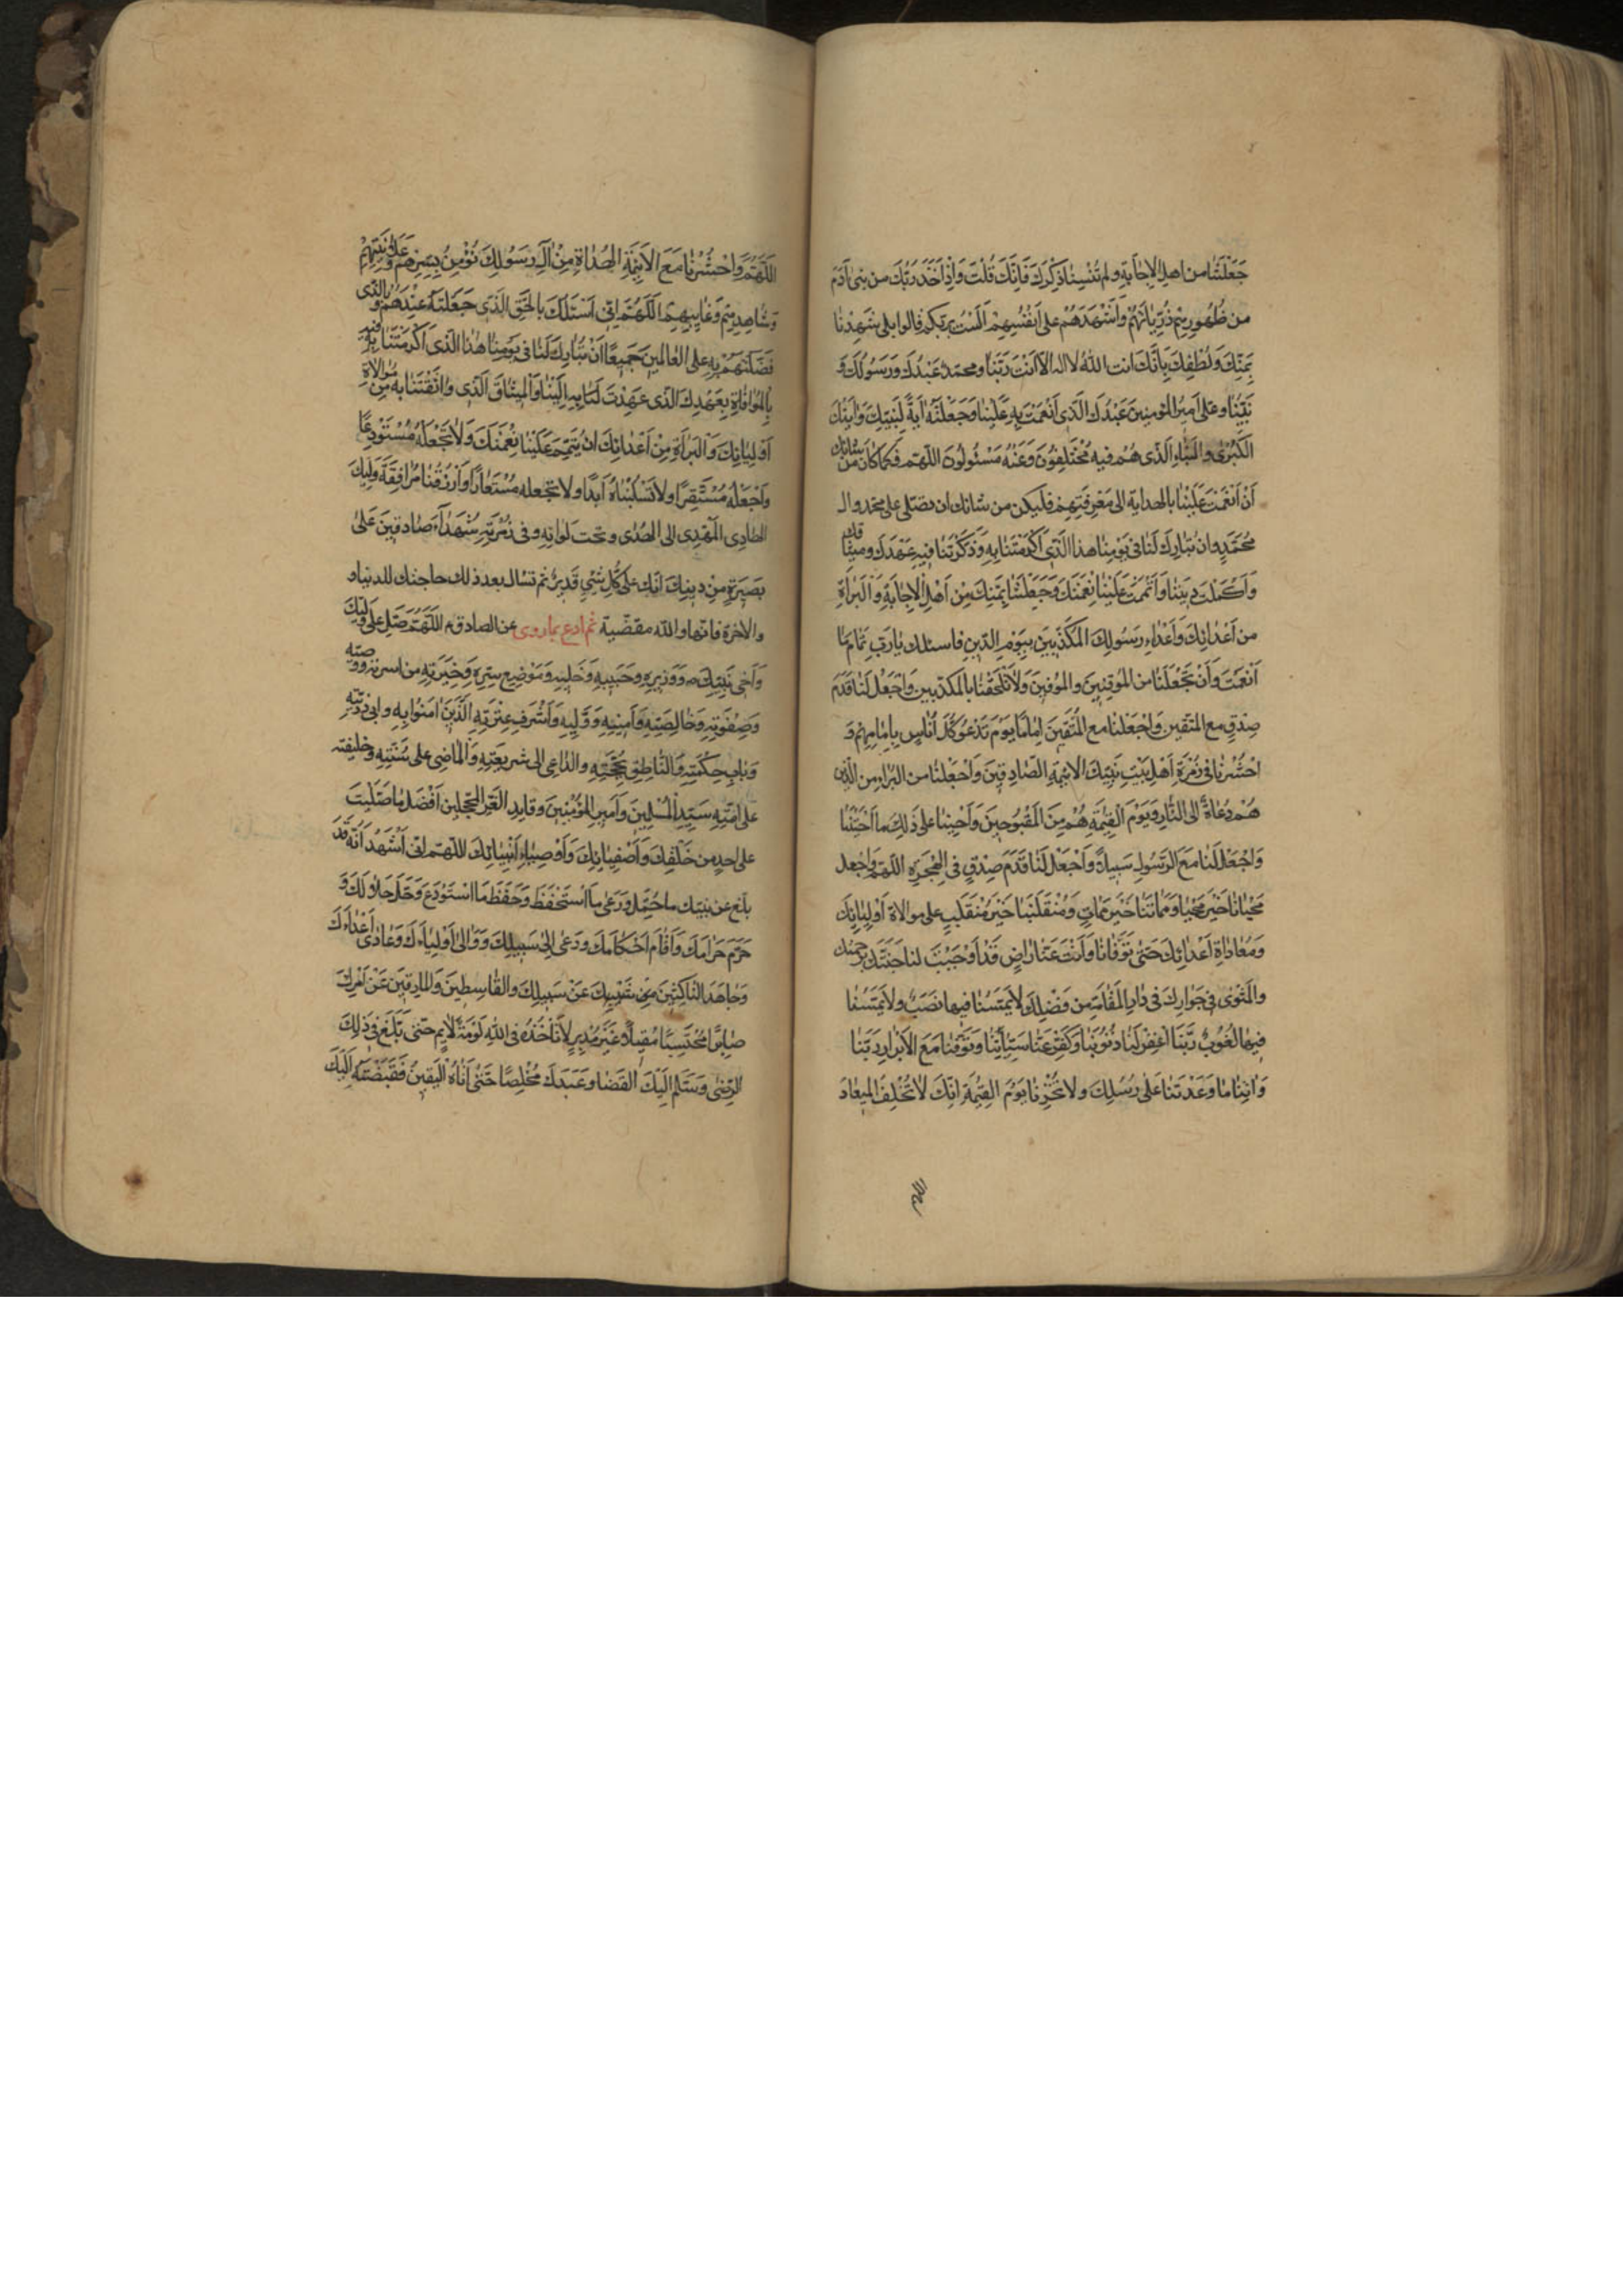 جَعَلْتَنا من اهل الاِجابَةِ ولم تُنْسِنا ذِكْرَكَ فَاِنَّكَ قُلْتَ وَاِذْ اَخَذَ رَبُّكَ من بنى آدَمَ
من ظُهُورِهِمْ ذُرِّيَّاتَهُمْ وَاَشْهَدَهُمْ على اَنْفُسِهِمْ اَلَسْتُ بِرَبِّكم قالوا بلى شَهِدْنا
بِمَنِّكَ وَلُطْفِكَ بِاَنَّكَ انت اللّٰهُ لا اله الا اَنْتَ رَبَّنا ومحمدٌ عَبْدُكَ وَرَسُولُكَ وَ
نَبِيُّنا وعلى اَميرُ المؤمنينَ عَبْدُكَ الَّذى اَنْعَمْتَ بِهِ عَلَيْنا وَجَعَلْتَهُ ايَةً لِنَبِيِّكَ وَايَتُكَ
الكُبْرىٰ والنَّباءِ الَّذى هُمْ فيه مُخْتَلِفُونَ وَعَنْهُ مَسْئُولُونَ اللّهم فَكَما كانَ من شانك
اَنْ اَنْعَمْتَ عَلَيْنا بالهداية الى مَعْرِفَتِهِمْ فليكن من شانك ان تصلى على محمد وال
مُحَمَّدٍ وان تُبارِكَ لَنا فى يَوْمِنا هذا الَّذى اَكْرَمْتَنا بِهِ وَذَكَّرْتَنا فيهِ عَهْدَكَ وميثاقك
وَاَكْمَلْتَ دينَنا وَاَتْمَمْتَ عَلَيْنا نِعْمَتَكَ وَجَعَلْتَنا بِمَنِّكَ مِنْ اَهْلِ الاِجابَةِ وَالْبَراءَةِ
من اَعْدائِكَ وَاَعْداءِ رَسُولِكَ المُكَذِّبينَ بِيَوْمِ الدّينِ فاسئلك يا رَبِّ تَمامَ ما
اَنْعَمْتَ وَاَنْ تَجْعَلَنا من المُوقِنينَ والمُوفينَ وَلا تُلْحِقْنا بالمكذّبين وَاجْعَلْ لَنا قَدَمَ
صِدْقٍ مع المتّقين وَاجْعَلنا مع المُتَّقينَ اِمامًا يَوْمَ تَدْعُو كُلَّ اُناسٍ بِاِمامِهِمْ وَ
احْشُرْنا فى زُمْرَةِ اَهْلِ بَيْتِ نَبِيِّكَ الائِمَّةِ الصّادِقينَ وَاجْعَلْنا من البُراءِ من الّذين
هُمْ دُعاةٌ الى النّارِ وَيَوْمَ القِيٰمَةِ هُمْ مِنَ المَقْبُوحينَ وَاَحْيِنا على ذٰلِكَ ما اَحْيَيْتَنا
وَاجْعَلْ لَنا مَعَ الرَّسُولِ سَبيلاً وَاجْعَلْ لَنا قَدَمَ صِدْقٍ فى الهِجْرَةِ اللّهم وَاجْعل
مَحْيانا خَيْرَ مَحْيا وَمَماتَنا خَيْرَ مَماتٍ وَمُنْقَلَبَنا خَيْرَ مُنْقَلَبٍ على موالاة اَوْلِيائِكَ
وَمُعاداةِ اَعْدائِكَ حَتّىٰ تَوَفّانا وَاَنْتَ عَنّا راضٍ قَدْ اَوْجَبْتَ لنا جَنَّتَكَ برحمتك
والمَثْوى فى جَوارِكَ فى دارِ المُقامَةِ من فَضْلِكَ لا يَمَسُّنا فيها نَصَبٌ ولا يَمَسُّنا
فيها لُغُوبٌ رَبَّنَا اغْفِرْ لَنا ذُنُوبَنا وَكَفِّرْ عَنّا سَيِّئاتِنا وَتَوَفَّنا مَعَ الاَبْرارِ رَبَّنا
وَاتِنا ما وَعَدْتَنا عَلى رُسُلِكَ ولا تُخْزِنا يَوْمَ القِيٰمَةِ اِنَّكَ لا تُخْلِفُ الميعادَ
اللهم
اَللّٰهُمَّ وَاحْشُرْنا مَعَ الاَئِمَّةِ الهُداةِ مِنْ آلِ رَسُولِكَ نُؤْمِنُ بِسِرِّهِمْ وَعَلانِيَتِهِمْ
وَشاهِدِهِمْ وَغائِبِهِمْ اَللّٰهُمَّ اِنّى اَسْئَلُكَ بالحَقِّ الَّذى جَعَلْتَهُ عِنْدَهُمْ وبالَّذى
فَضَّلْتَهُمْ بِهِ على العالَمينَ جَميعًا اَنْ تُبارِكَ لَنا فى يَوْمِنا هٰذا الَّذى اَكْرَمْتَنا فيهِ
بِالمُوافاةِ بِعَهْدِكَ الَّذى عَهِدْتَ لَنا بِهِ اِلَيْنا وَالْميثاقَ الَّذى واثَقْتَنا به مِن مُوالاةِ
اَوْلِيائِكَ وَالْبَراءَةِ مِنْ اَعْدائِكَ ان تُتِمَّ عَلَيْنا نِعْمَتَكَ وَلا تَجْعَلَهُ مُسْتَوْدَعًا
وَاجْعَلْهُ مُسْتَقِرًّا ولا تَسْلُبْناهُ اَبَدًا ولا تجعله مُسْتَعارًا وَارْزُقْنا مُرافَقَةَ وَلِيِّكَ
الهادِى المَهْدِى الى الهُدى وتحت لوائِهِ وفى زُمْرَتِهِ شُهَداءَ صادقينَ عَلىٰ
بَصيرَةٍ مِنْ دينِكَ اِنَّك على كُلِّ شَىْءٍ قَديرٌ ثم تسأل بعد ذلك حاجتك للدنيا و
والاخرة فانها واللّه مقضّية ثم ادع بما روى عن الصادق م اللّٰهُمَّ صَلِّ على وَلِيِّكَ
وَاَخى نَبِيِّكَ وَوَزيرِهِ وَحَبيبِهِ وَخَليلِهِ وَمَوْضِعِ سِرِّهِ وَخِيَرَتِهِ من اسرته ووصيّه
وَصِفْوَتِهِ وَخالِصَتِهِ وَاَمينِهِ وَوَلِيِّهِ وَاَشْرَفِ عِتْرَتِهِ الَّذينَ امَنُوا بِهِ وابى ذريّته
وَبابِ حِكْمَتِهِ وَالنّاطِقِ بِحُجَّتِهِ والدّاعى الى شريعَتِهِ وَالْماضِى على سُنَّتِهِ وخليفته
على اُمَّتِهِ سَيِّدِ المُسْلِمينَ وَاَميرِ المُؤْمِنينَ وقايد الغُرِّ المحجّلينَ اَفْضَلَ ما صَلَّيْتَ
على احدٍ من خَلْقِكَ وَاَصْفِيائِكَ وَاَوْصِياءِ اَنْبِيائِكَ اللّهم انى اَشْهَدُ اَنَّهُ قَدْ
بلّغ عن نبيّك ما حُمِّلَ وَرَعى ما اسْتُحْفِظَ وَحَفِظَ مَا اسْتُودِعَ وَحَلَّلَ حَلالَكَ وَ
حَرَّمَ حَرامَكَ وَاَقامَ اَحْكامَكَ ودَعى اِلى سَبيلِكَ وَوالىٰ اَوْلِياءَكَ وَعادى اَعْداءَكَ
وَجاهَدَ النّاكِثينَ عَنْ سَبيلِكَ والقاسِطينَ وَالمارِقينَ عَنْ اَمْرِكَ
صابِرًا مُحْتَسِبًا مُقْبِلاً غَيْرَ مُدْبِرٍ لا تَأخُذُهُ فى اللّٰهِ لَوْمَةُ لائِمٍ حتى بَلَغَ فى ذٰلِكَ
الرِّضىٰ وسَلَّمَ اِلَيْكَ القَضا وَعَبَدَكَ مُخْلِصًا حَتّىٰ اَتاهُ الْيَقينُ فَقَبَضْتَهُ اِلَيْكَ